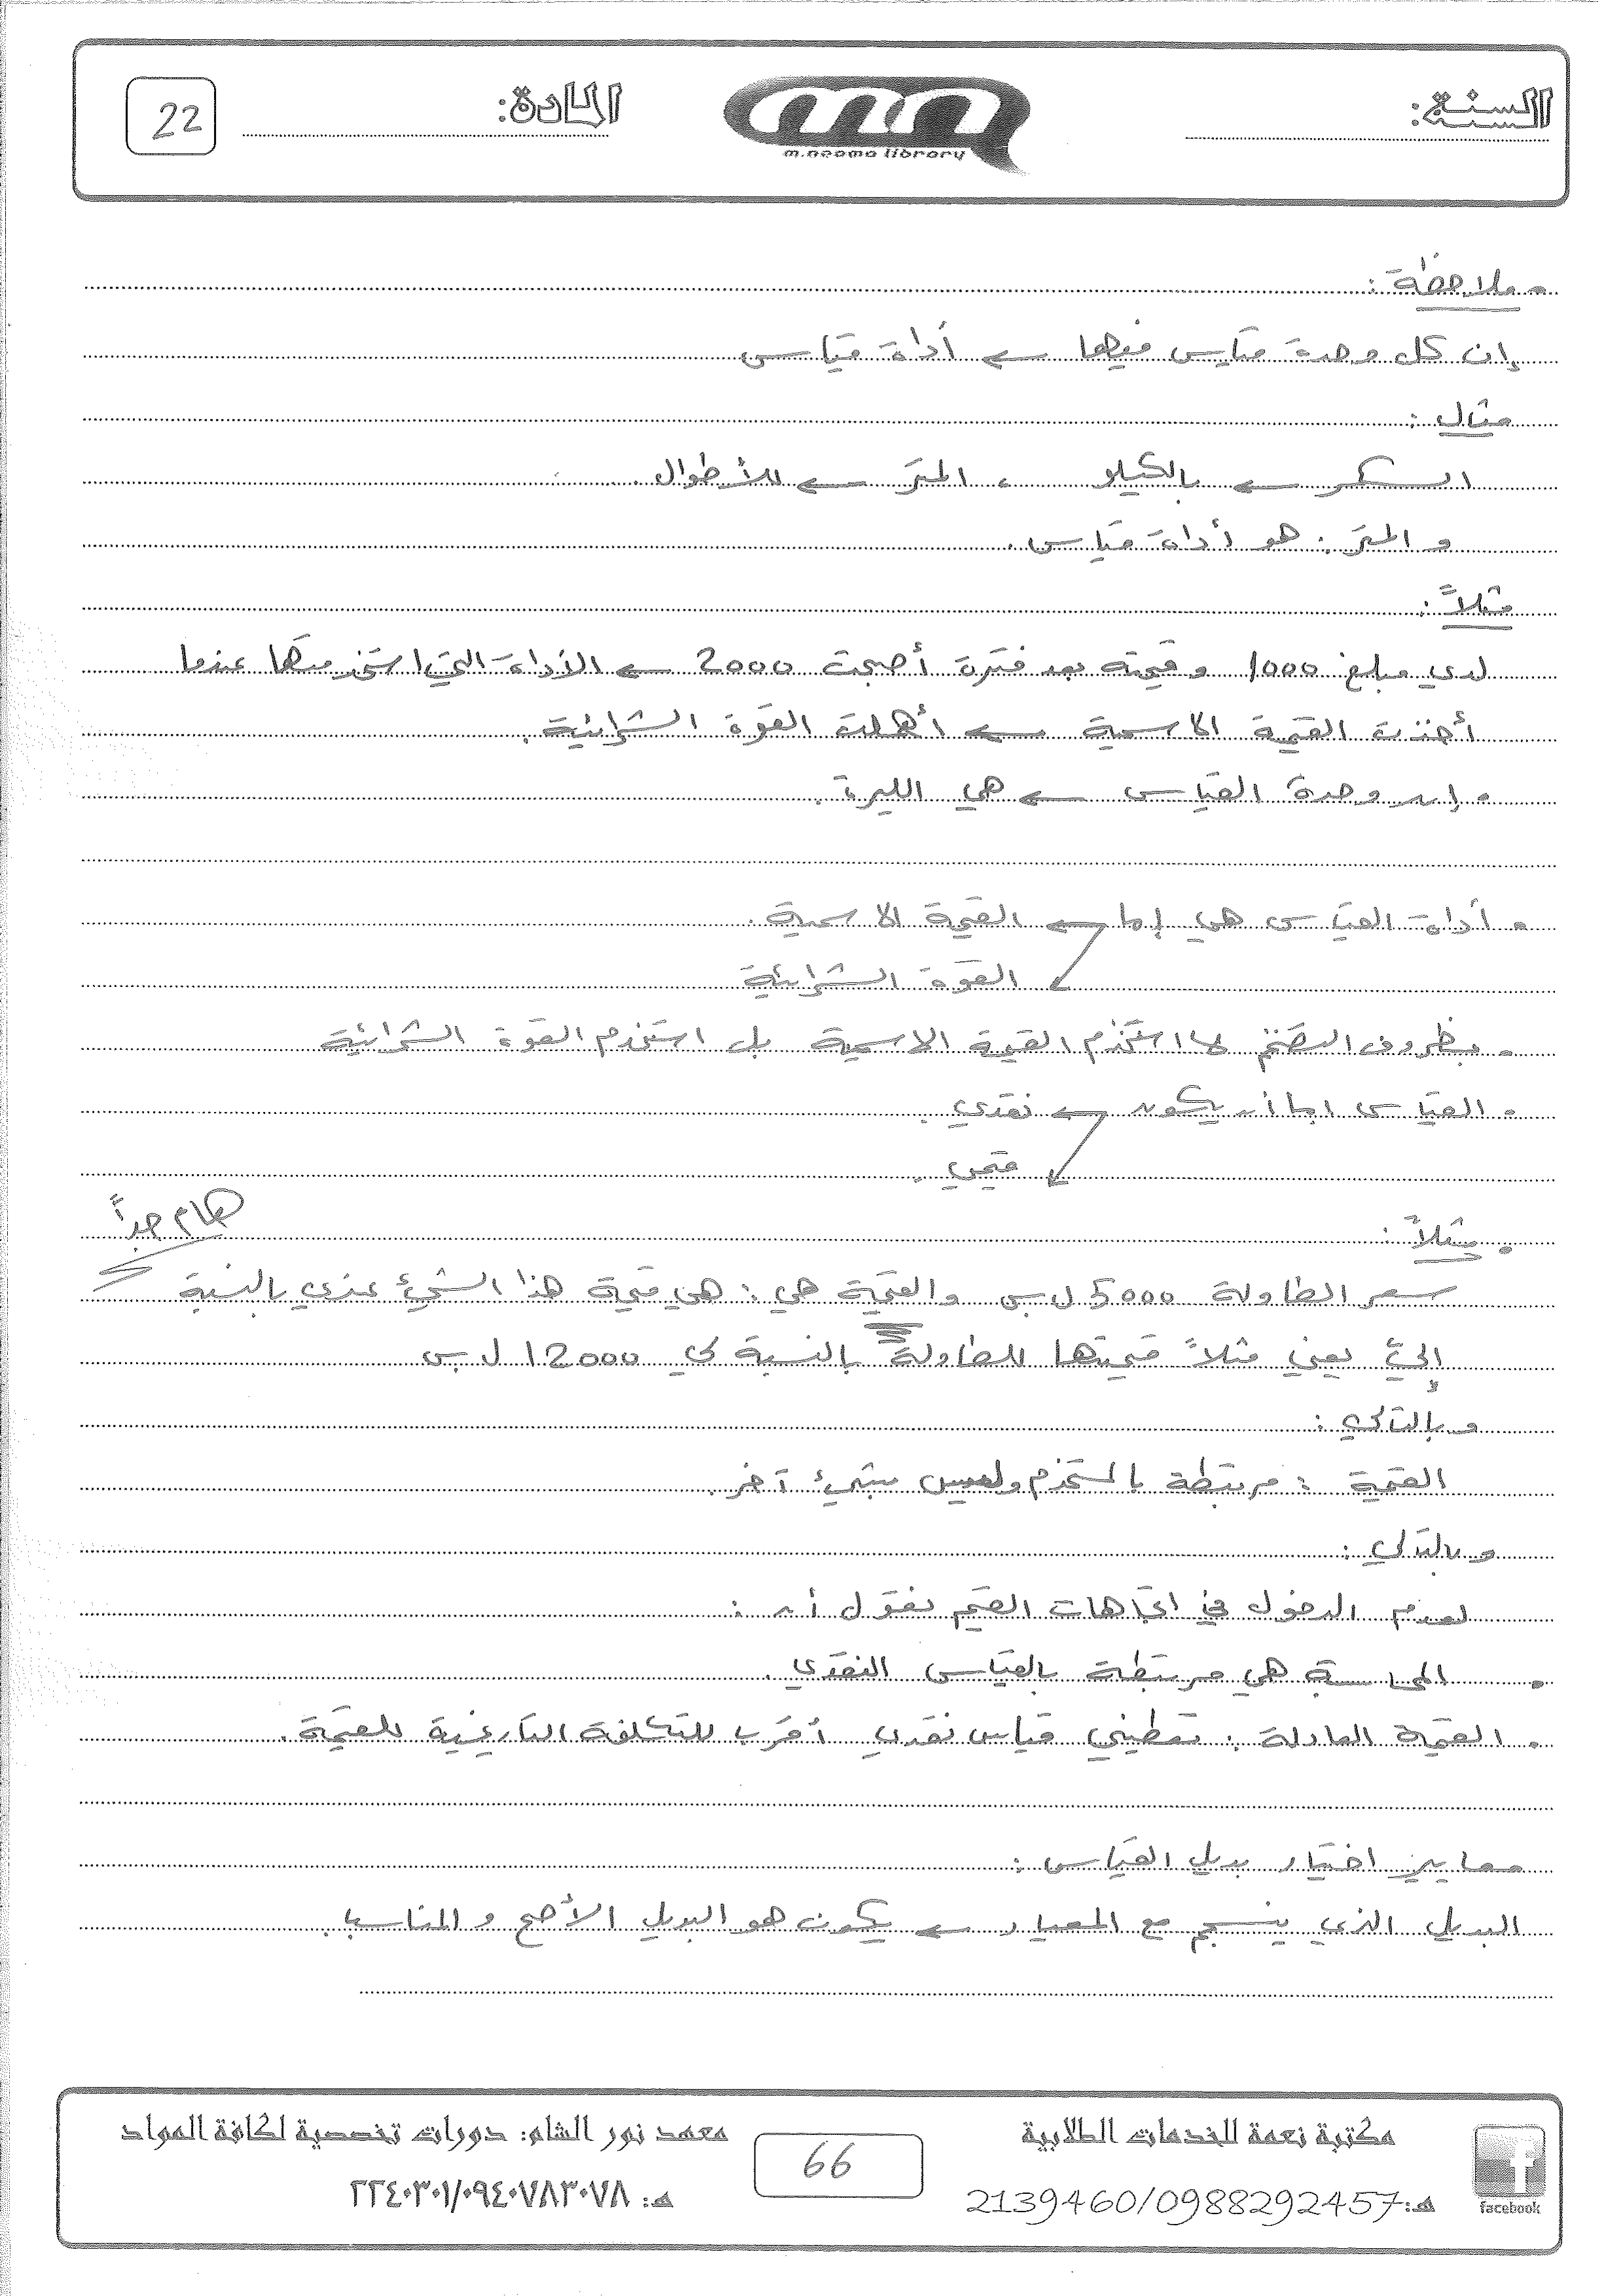 السنة:
m.neama library
المادة:
22
• ملاحظة:
إن كل وحدة قياس فيها ← أداة قياس
مثال:
السكر ← بالكيلو ، المتر ← للأطوال.
و المتر: هو أداة قياس.
مثلاً:
لدي مبلغ 1000 وقيمته بعد فترة أصبحت 2000 ← الأداة التي استخدمتها عندما
أخذت القيمة الاسمية ← أهملت القوة الشرائية.
• إن وحدة القياس ← هي الليرة.
• أداة القياس هي إما ← القيمة الاسمية.
← القوة الشرائية
• بظروف التضخم لا استخدم القيمة الاسمية بل استخدم القوة الشرائية
• القياس اما أن يكون ← نقدي.
← قيمي.
• مثلاً:
هام جداً
سعر الطاولة 5000 ل.س والقيمة هي: هي قيمة هذا الشيء عندي بالنسبة
إليّ يعني مثلاً قيمتها للطاولة بالنسبة لي 12000 ل.س
و بالتالي:
القيمة: مرتبطة بالمستخدم وليس بشيء آخر.
و بالتالي:
لعدم الدخول في اتجاهات القيم نقول أن:
• المحاسبة هي مرتبطة بالقياس النقدي.
• القيمة العادلة: تعطيني قياس نقدي أقرب للتكلفة التاريخية للقيمة.
معايير اختيار بديل القياس:
البديل الذي ينسجم مع المعيار ← يكون هو البديل الأصح و المناسب.
facebook
مكتبة نعمة للخدمات الطلابية
هـ: 2139460/0988292457
66
معهد نور الشام: دورات تخصصية لكافة المواد
هـ: ٢٢٤٠٣٠١/٠٩٤٠٧٨٣٠٧٨